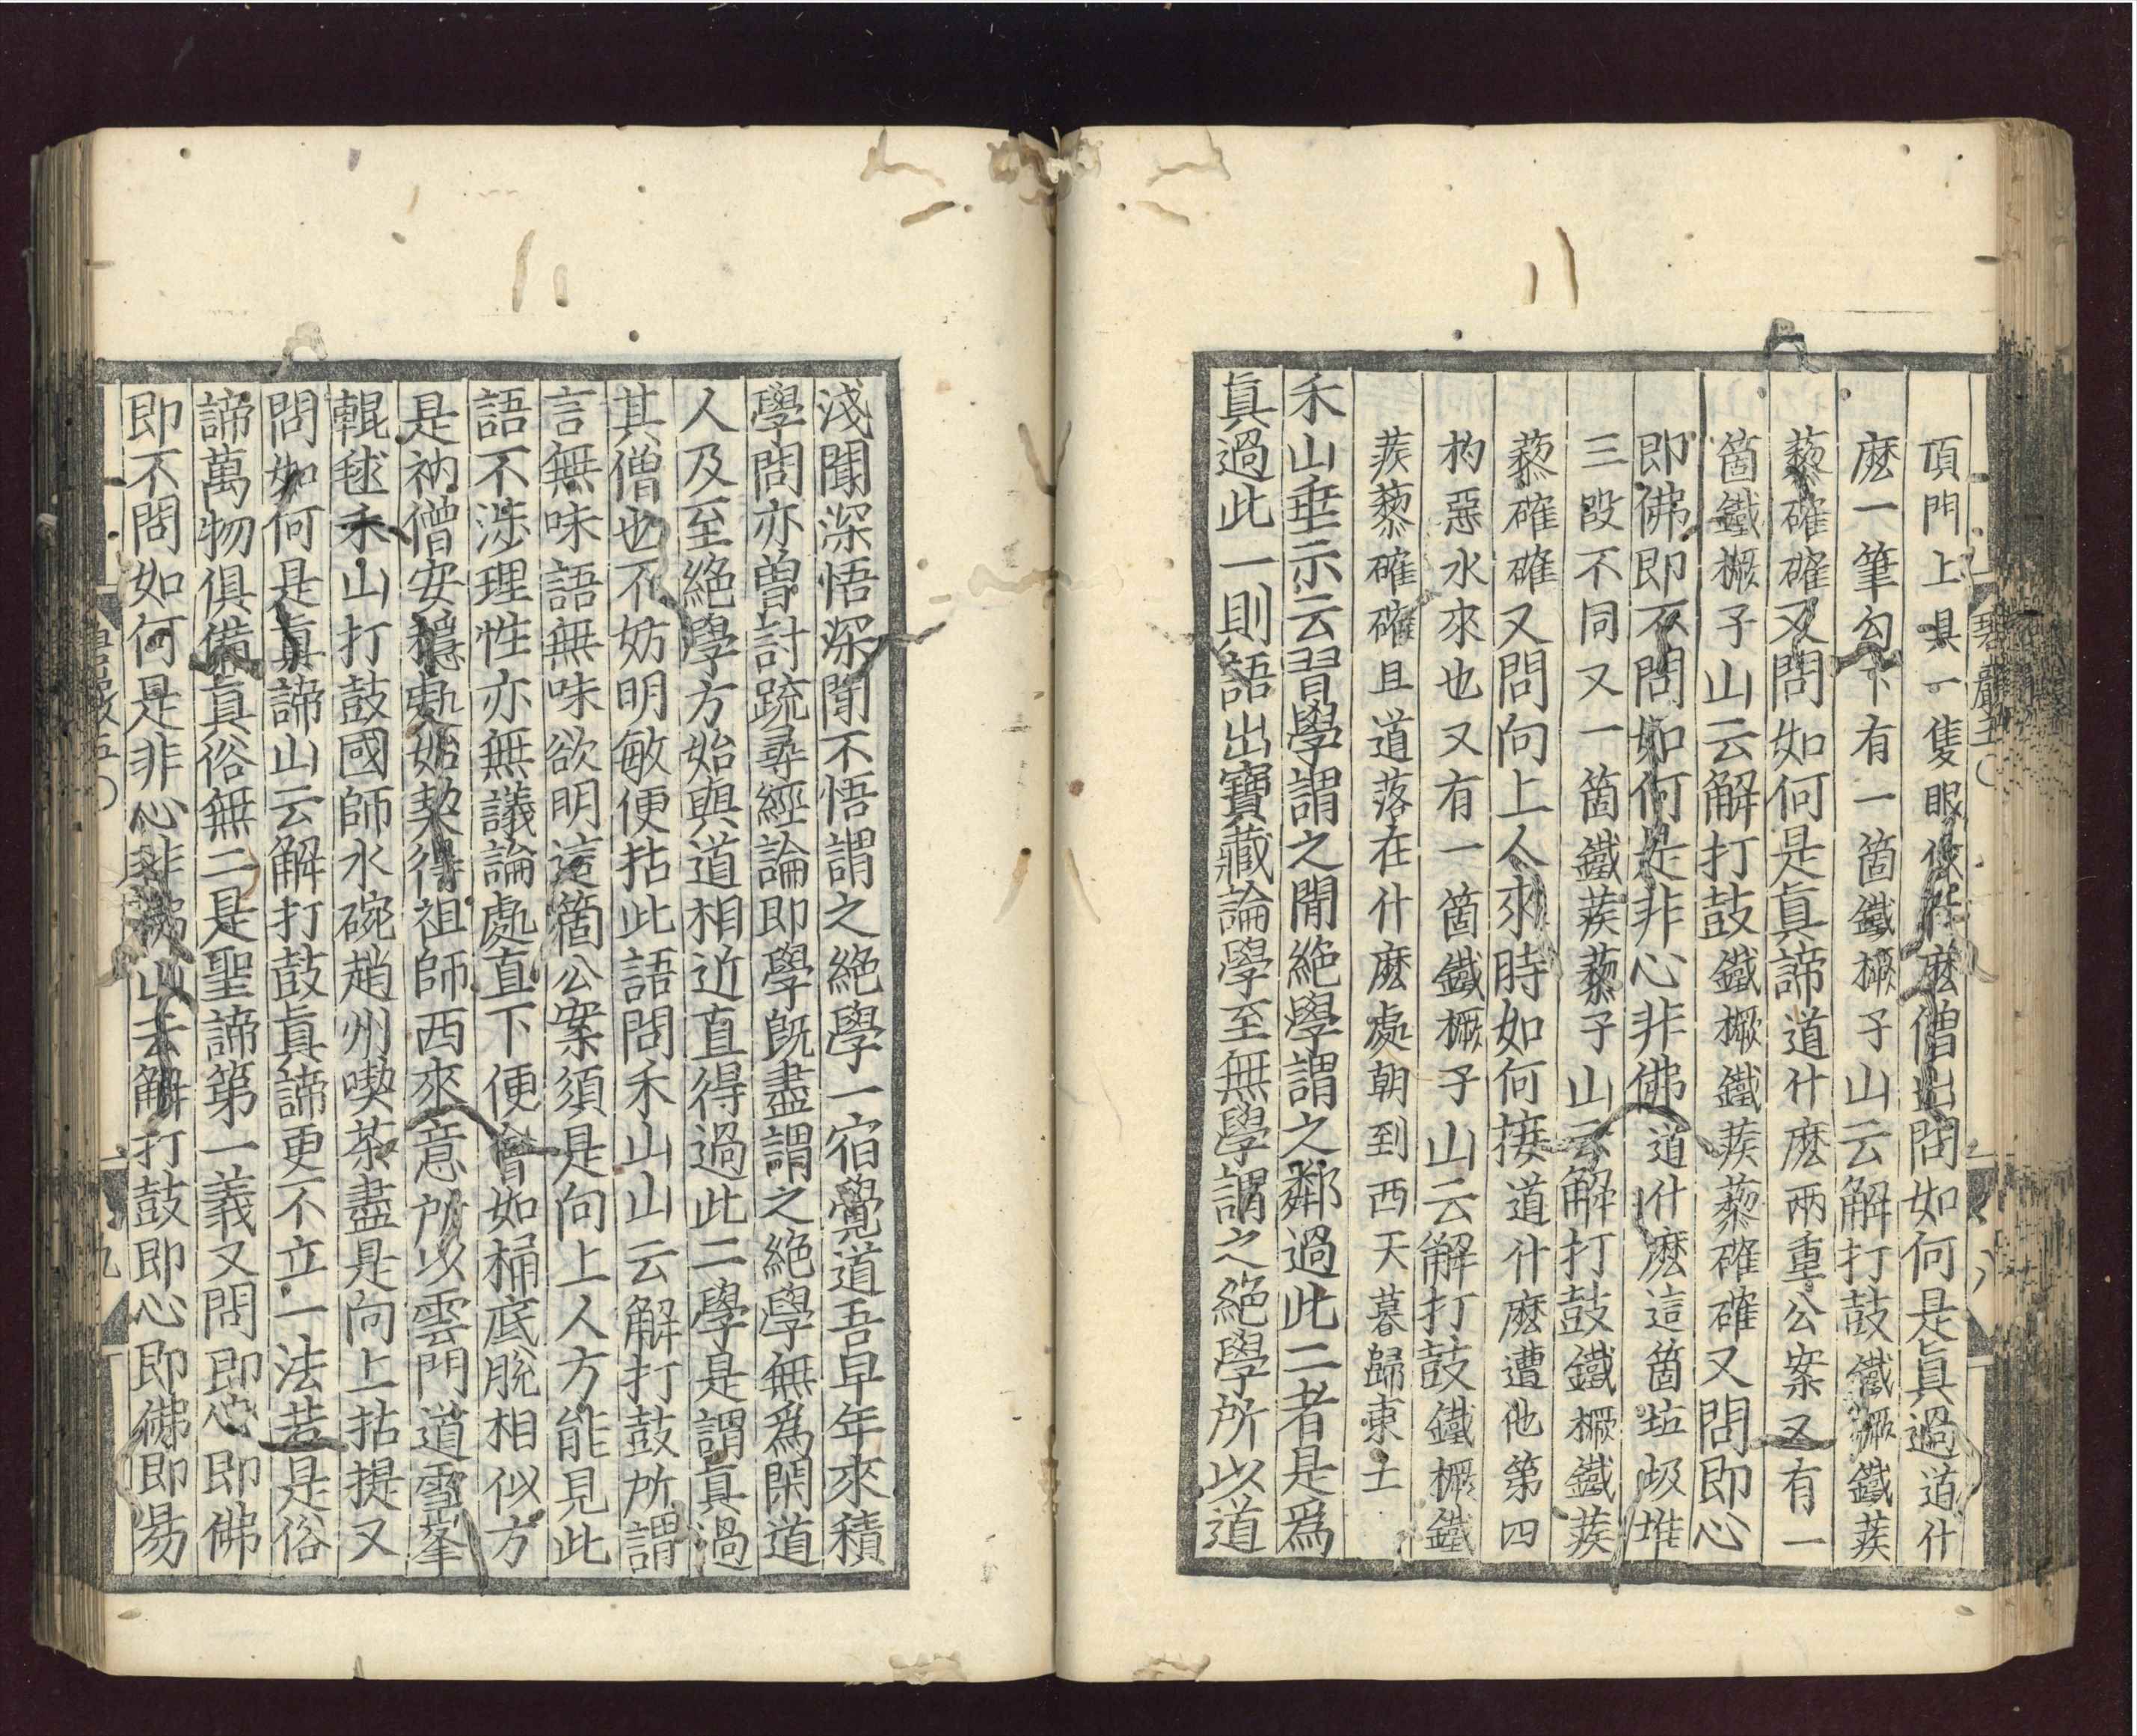 頂門上具一隻眼作什麼僧出問如何是眞過道什
麼一筆勾下有一箇鐵橛子山云解打鼓鐵橛鐵蒺
藜確確又問如何是眞諦道什麼兩重公案又有一
箇鐵橛子山云解打鼓鐵橛鐵蒺藜確確又問即心
即佛即不問如何是非心非佛道什麼這箇𡋯圾堆
三段不同又一箇鐵蒺藜子山云解打鼓鐵橛鐵蒺
藜確確又問向上人來時如何接道什麼遭他第四
杓惡水來也又有一箇鐵橛子山云解打鼓鐵橛鐵
蒺藜確確且道落在什麼處朝到西天暮歸東土
禾山垂示云習學謂之聞絶學謂之鄰過此二者是爲
眞過此一則語出寶藏論學至無學謂之絶學所以道
淺聞深悟深聞不悟謂之絶學一宿覺道吾早年來積
學問亦曽討疏尋經論即學旣盡謂之絶學無爲閑道
人及至絶學方始與道相近直得過此二學是謂眞過
其僧也不妨明敏便拈此語問禾山山云解打鼓所謂
言無味語無味欲明這箇公案須是向上人方能見此
語不涉理性亦無議論處直下便會如桶底脫相似方
是衲僧安穩處始契得祖師西來意所以雲門道雪峯
輥毬禾山打鼓國師水碗趙州喫茶盡是向上拈提又
問如何是眞諦山云解打鼓眞諦更不立一法若是俗
諦萬物俱備眞俗無二是聖諦第一義又問即心即佛
即不問如何是非心非佛山云解打鼓即心即佛即易
碧巖五
八
碧巖五
九